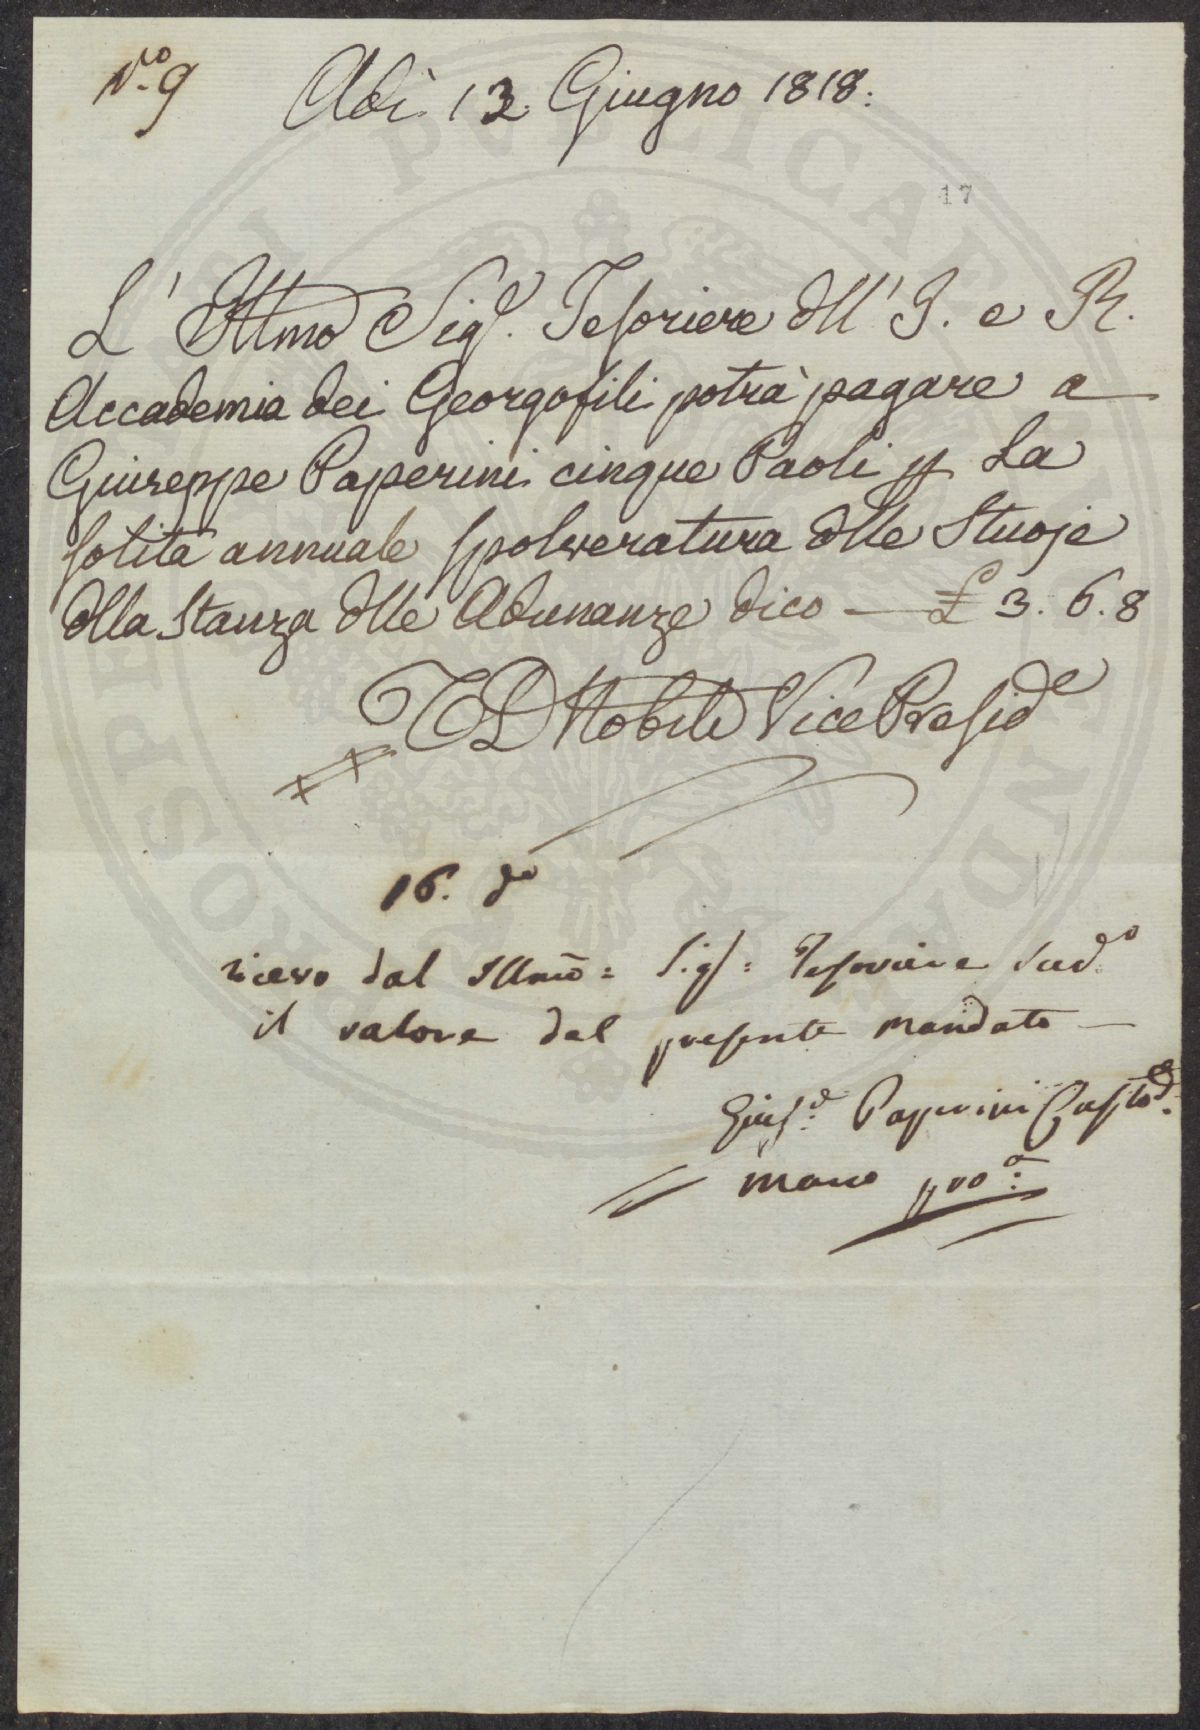 N.o 9
Adì 13 Giugno 1818:
17
L' Illmo Sigr. Tesoriere dell' I. e R.
Accademia dei Georgofili potrà pagare a
Giuseppe Paperini cinque Paoli p La
solita annuale spolveratura delle Stuoje
della Stanza delle Adunanze dico — £ 3. 6. 8
Nobili Vice Preside
16. do
ricevo dal Illmo = Sigr = Tesoriere Sudo
il valore del presente mandato —
Giuse Paperini Custode
mano pro:a